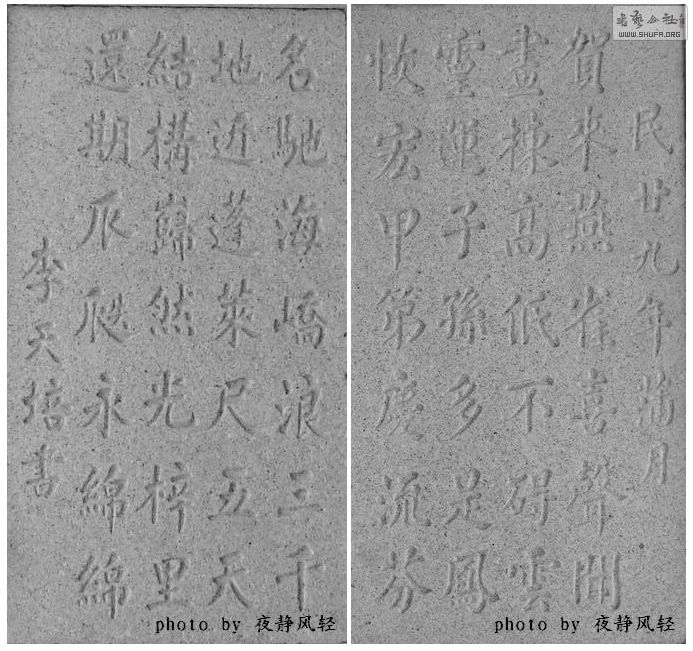 民廿九年蒲月
賀來燕雀喜聲聞
畫棟高低不碍雲
靈運子孫多足鳳
恢宏甲第慶流芬
名馳海嶠浪三千
地近蓬萊尺五天
結構巋然光梓里
還期瓜瓞永綿綿
李天培書
photo by 夜静风轻
photo by 夜静风轻
书艺公社
WWW.SHUFA.ORG